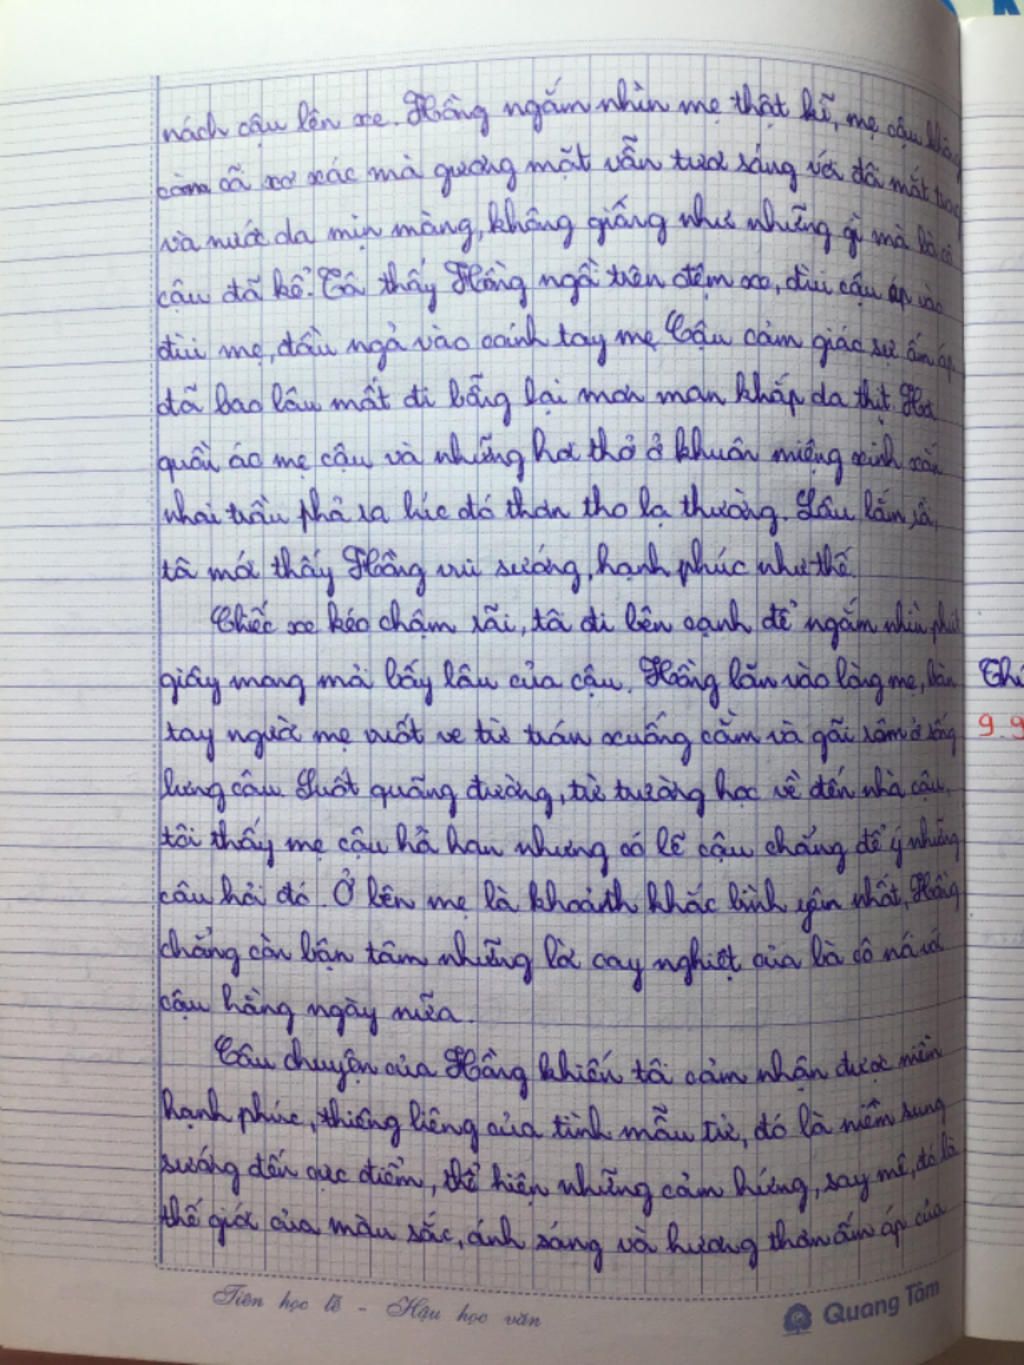 nách cậu lên xe. Hồng ngắm nhìn mẹ thật kĩ, mẹ cậu không
còm cõi xơ xác mà gương mặt vẫn tươi sáng với đôi mắt trong
và nước da mịn màng, không giống như những gì mà bà cô
cậu đã kể. Tôi thấy Hồng ngồi trên đệm xe, đùi cậu áp vào
đùi mẹ, đầu ngả vào cánh tay mẹ. Cậu cảm giác sự ấm áp
đã bao lâu mất đi bỗng lại mơn man khắp da thịt. Hơi
quần áo mẹ cậu và những hơi thở ở khuôn miệng xinh xắn
nhai trầu phả ra lúc đó thơm tho lạ thường. Lâu lắm rồi
tôi mới thấy Hồng vui sướng, hạnh phúc như thế.
Chiếc xe kéo chậm rãi, tôi đi bên cạnh để ngắm nhìn phút
giây mong mỏi bấy lâu của cậu. Hồng lăn vào lòng mẹ, bàn
tay người mẹ vuốt ve từ trán xuống cằm và gãi rôm ở sống
lưng cậu. Suốt quãng đường, từ trường học về đến nhà cậu,
tôi thấy mẹ cậu hỏi han nhưng có lẽ cậu chẳng để ý những
câu hỏi đó. Ở bên mẹ là khoảnh khắc bình yên nhất, Hồng
chẳng còn bận tâm những lời cay nghiệt của bà cô nói với
cậu hằng ngày nữa.
Câu chuyện của Hồng khiến tôi cảm nhận được niềm
hạnh phúc, thiêng liêng của tình mẫu tử, đó là niềm sung
sướng đến cực điểm, thể hiện những cảm hứng, say mê, đó là
thế giới của màu sắc, ánh sáng và hương thơm ấm áp của
Tiên học lễ - Hậu học văn
Quang Tâm
Thứ
9.9